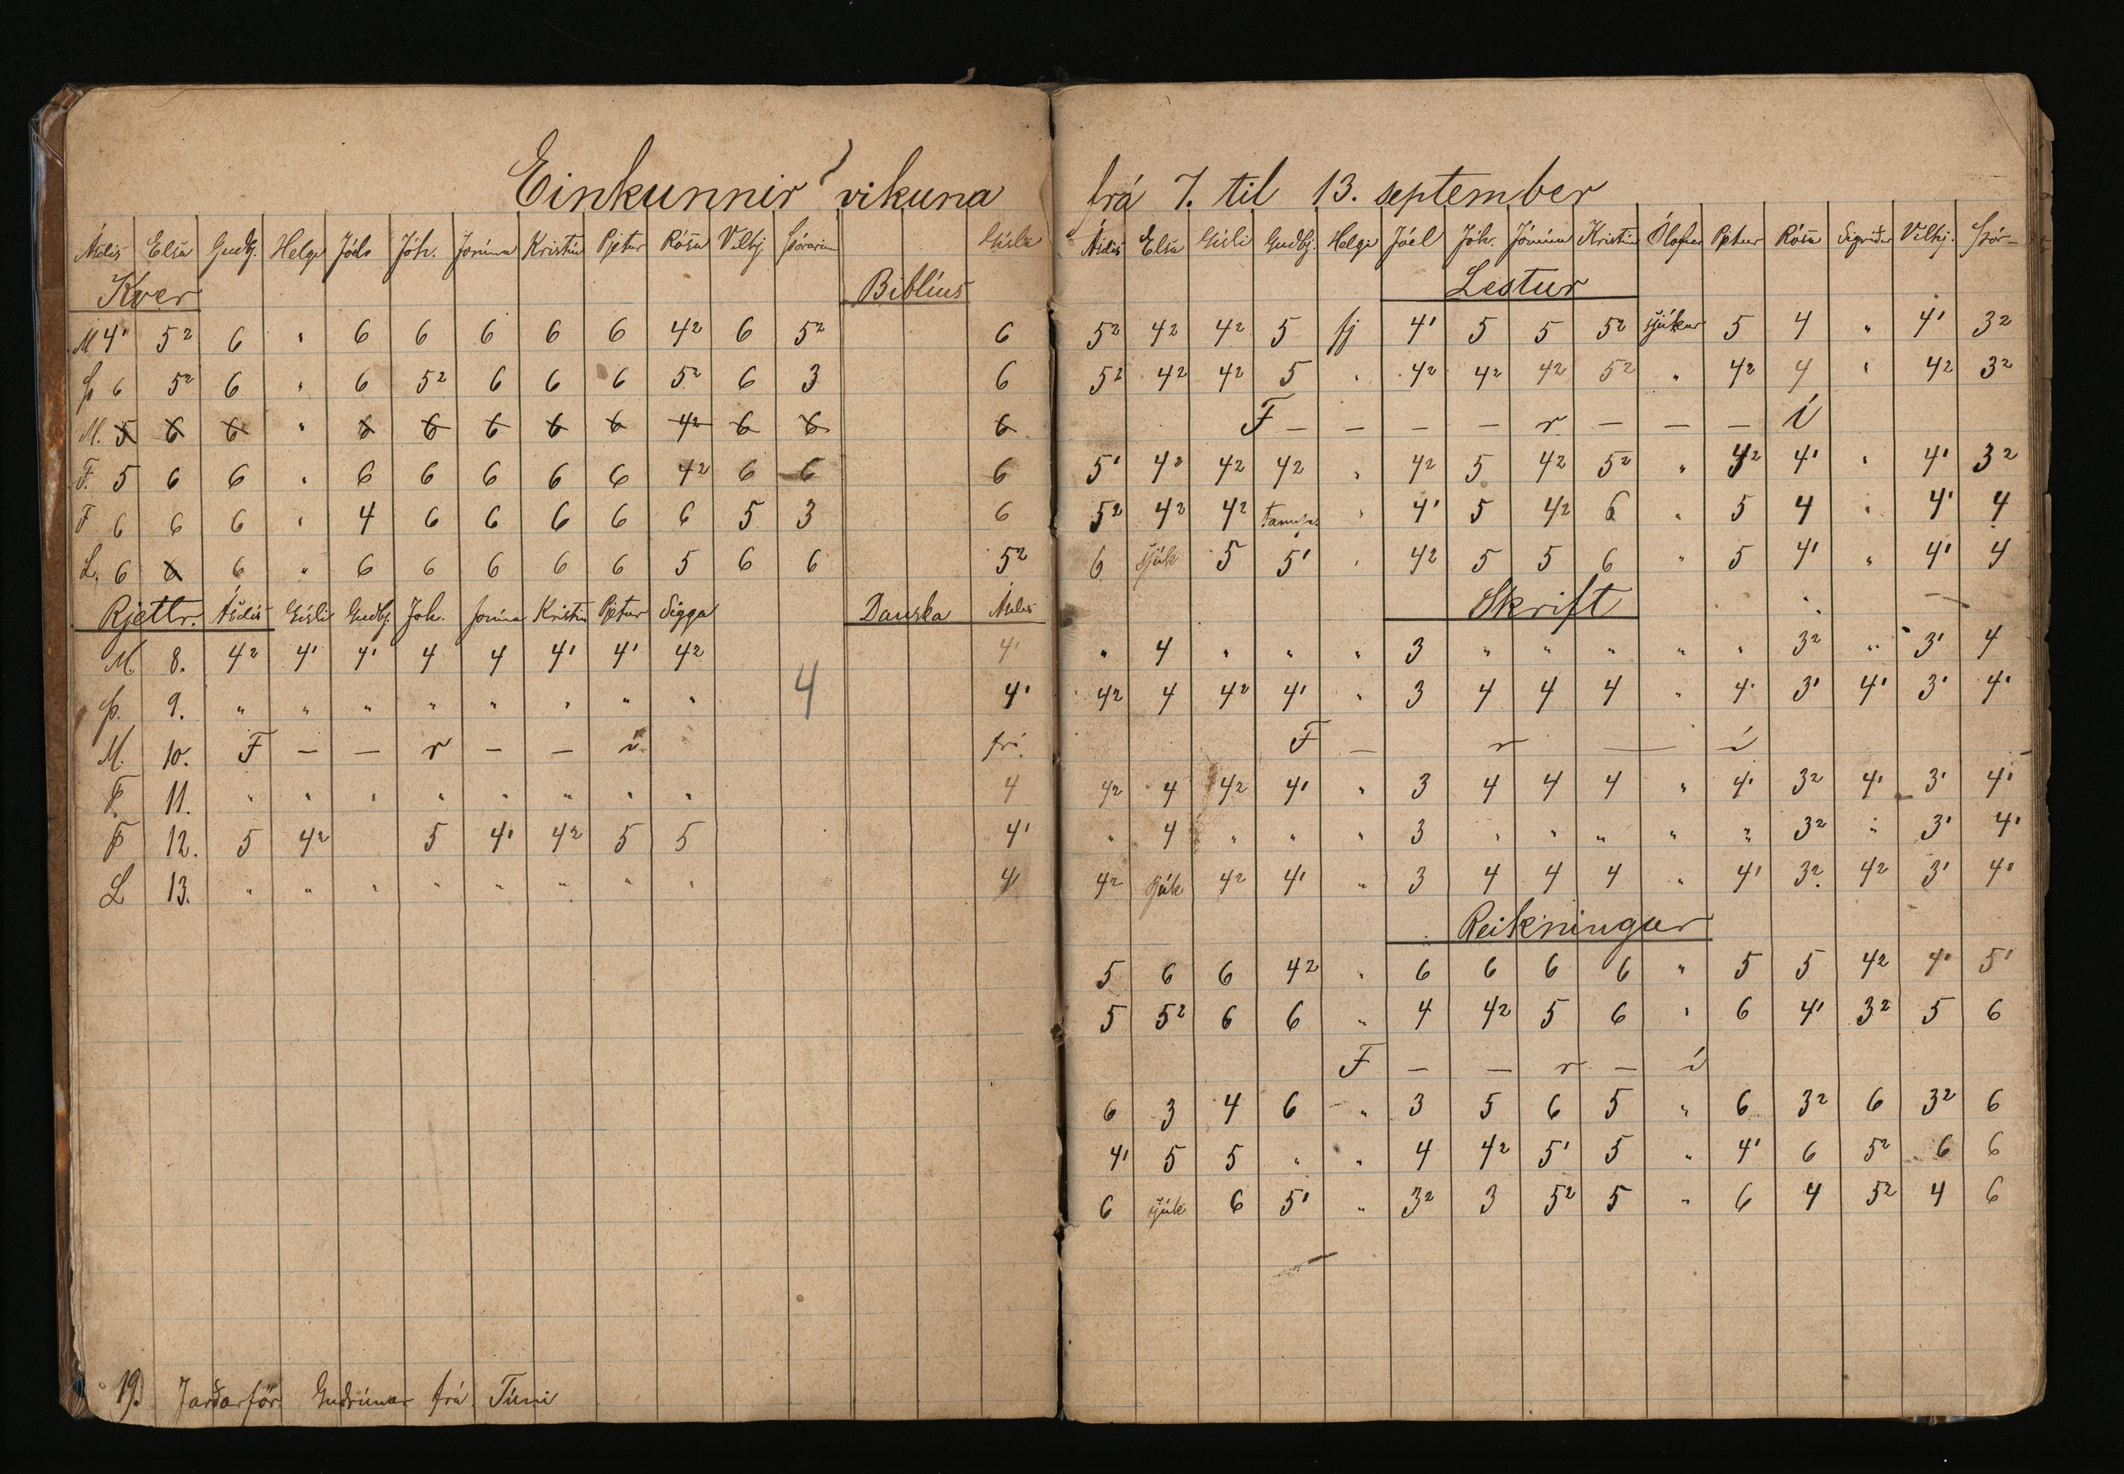 Einkunnir vikuna
Ásdís Elsa Guðbj. Helgi Jóel Jóh. Jónína Kristín Pjetur Rósa Vilhj. Þórarinn Gísli
Kver Biblíus
M 4¹ 5² 6 " 6 6 6 6 6 4² 6 5² 6
Þ 6 5² 6 " 6 5² 6 6 6 5² 6 3 6
M. 5 6 6 " 6 6 6 6 6 4² 6 6 6
F. 5 6 6 " 6 6 6 6 6 4² 6 6 6
F 6 6 6 " 4 6 6 6 6 6 5 3 6
L. 6 6 6 " 6 6 6 6 6 5 6 6 5²
Rjettr. Ásdís Gísli Guðbj. Joh. Jonína Kristín Pjetur Sigga Danska Ásdís
M. 8. 4² 4¹ 4¹ 4 4 4¹ 4¹ 4² 4¹
Þ. 9. " " " " " " " " 4 4¹
M. 10. F — — r — — í frí.
F. 11. " " " " " " " " 4
F 12. 5 4² 5 4¹ 4² 5 5 4¹
L 13. " " " " " " " " 4
19. Jarðarför Guðrúnar frá
frá 7. til 13. september
Ásdís Elsa Gísli Guðbj. Helgi Jóel Jóh. Jónína Kristín Ólafur Pjetur Rósa Sigríður Vilhj. Þór—
Lestur
5² 4² 4² 5 fj 4¹ 5 5 5² sjúkur 5 4 " 4¹ 3²
5² 4² 4² 5 " 4² 4² 4² 5² " 4² 4 " 4² 3²
F — — — — r — — — í
5¹ 4² 4² 4² " 4² 5 4² 5² " 4² 4¹ " 4¹ 3²
5² 4² 4² " 4¹ 5 4² 6 " 5 4 " 4¹ 4
6 sjúk 5 5¹ " 4² 5 5 6 " 5 4¹ " 4¹ 4
Skrift
" 4 " " " 3 " " " " " 3² " 3¹ 4
4² 4 4² 4¹ " 3 4 4 4 " 4¹ 3¹ 4¹ 3¹ 4¹
F — r — í
4² 4 4² 4¹ " 3 4 4 4 " 4¹ 3² 4¹ 3¹ 4¹
" 4 " " " 3 " " " " " 3² " 3¹ 4¹
4² sjúk 4² 4¹ " 3 4 4 4 " 4¹ 3² 4² 3¹ 4¹
Reikningur
5 6 6 4² " 6 6 6 6 " 5 5 4² 4¹ 5¹
5 5² 6 6 " 4 4² 5 6 " 6 4¹ 3² 5 6
F — — r — í
6 3 4 6 " 3 5 6 5 " 6 3² 6 3² 6
4¹ 5 5 " " 4 4² 5¹ 5 " 4¹ 6 5² 6 6
6 sjúk 6 5¹ " 3² 3 5² 5 " 6 4 5² 4 6